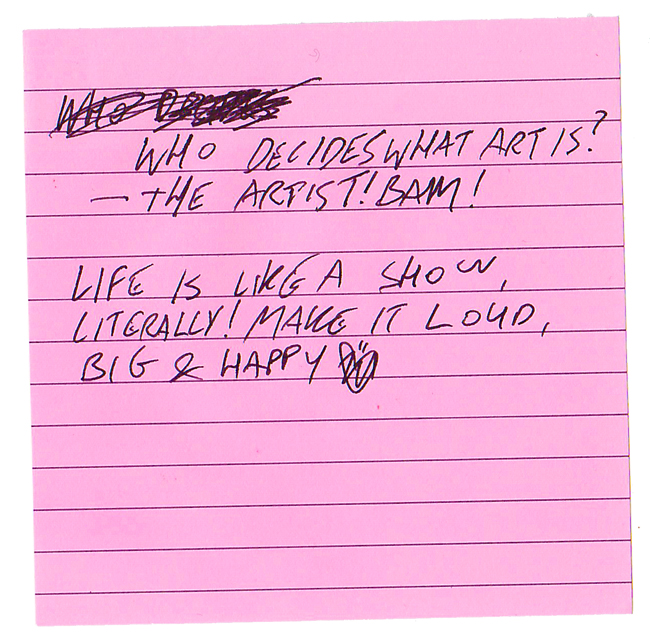 WHO DECIDES WHAT ART IS?
— THE ARTIST! BAM!
LIFE IS LIKE A SHOW,
LITERALLY! MAKE IT LOUD,
BIG & HAPPY